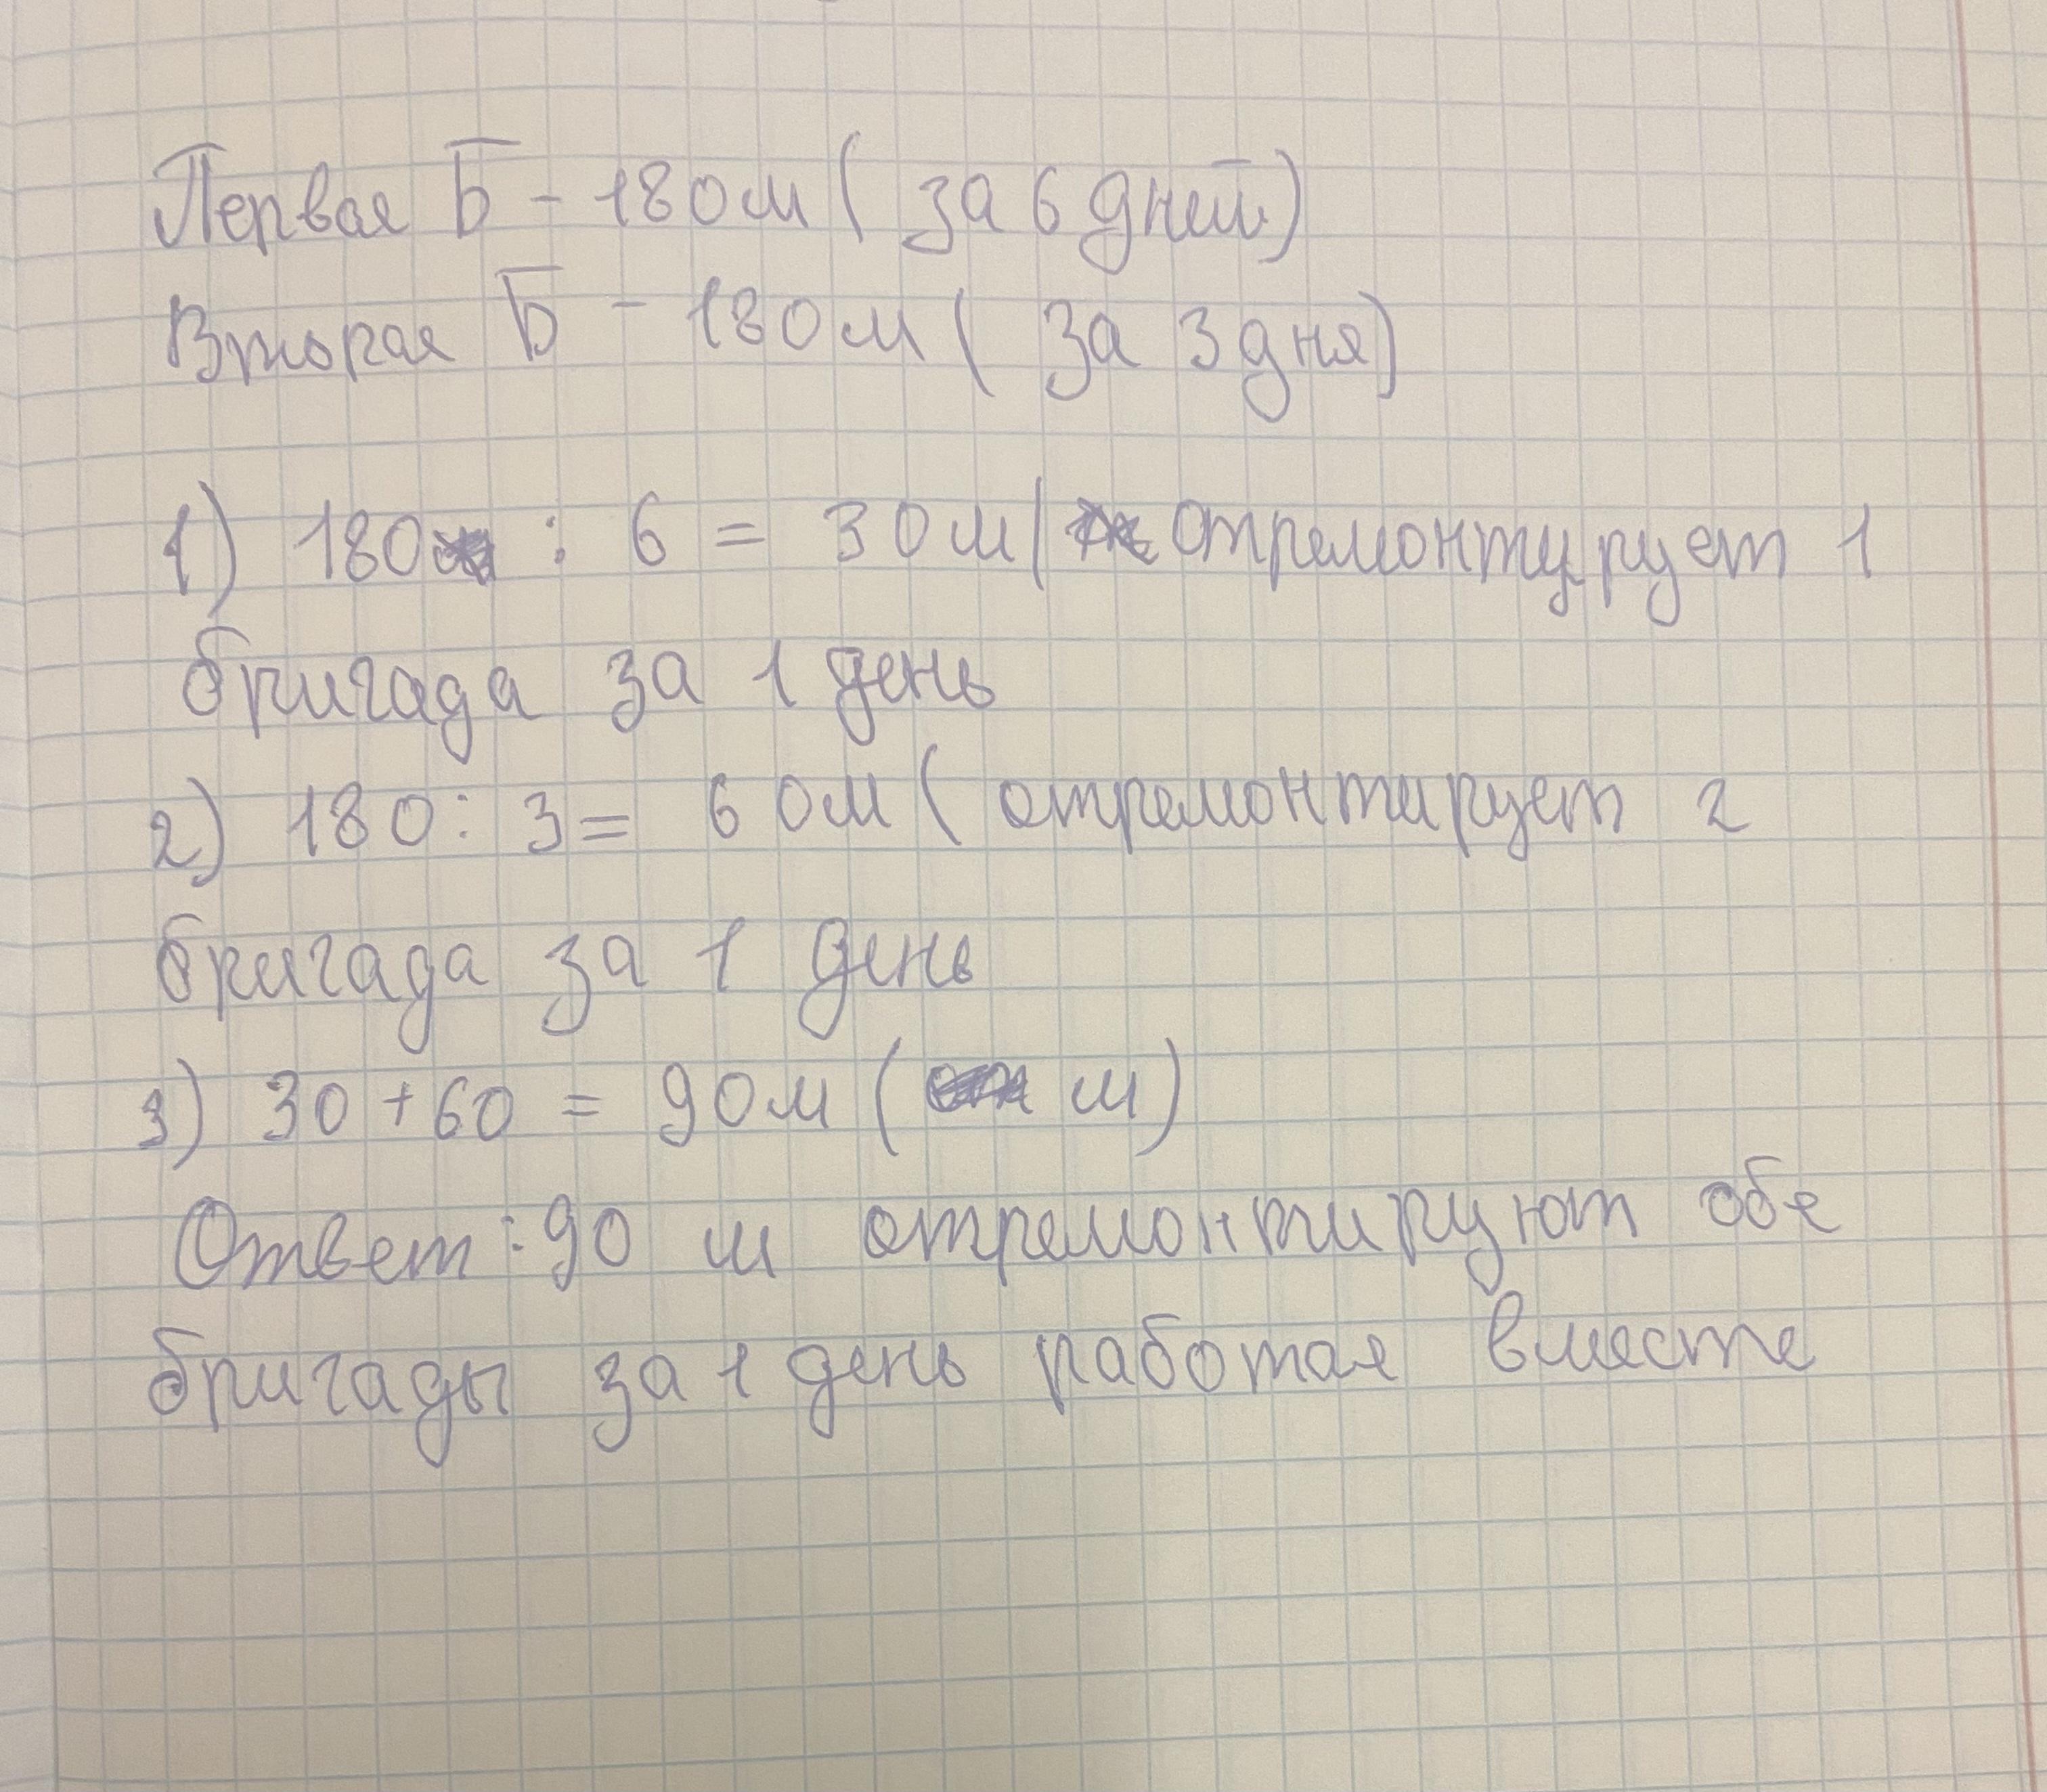 Первая Б - 180м ( за 6 дней)
Вторая Б - 180м ( за 3 дня)
1) 180 : 6 = 30м( отремонтурует 1
бригада за 1 день
2) 180 : 3 = 60м ( отремонтирует 2
бригада за 1 день
3) 30 + 60 = 90м ( м)
Ответ : 90 м отремонтируют обе
бригады за 1 день работая вместе